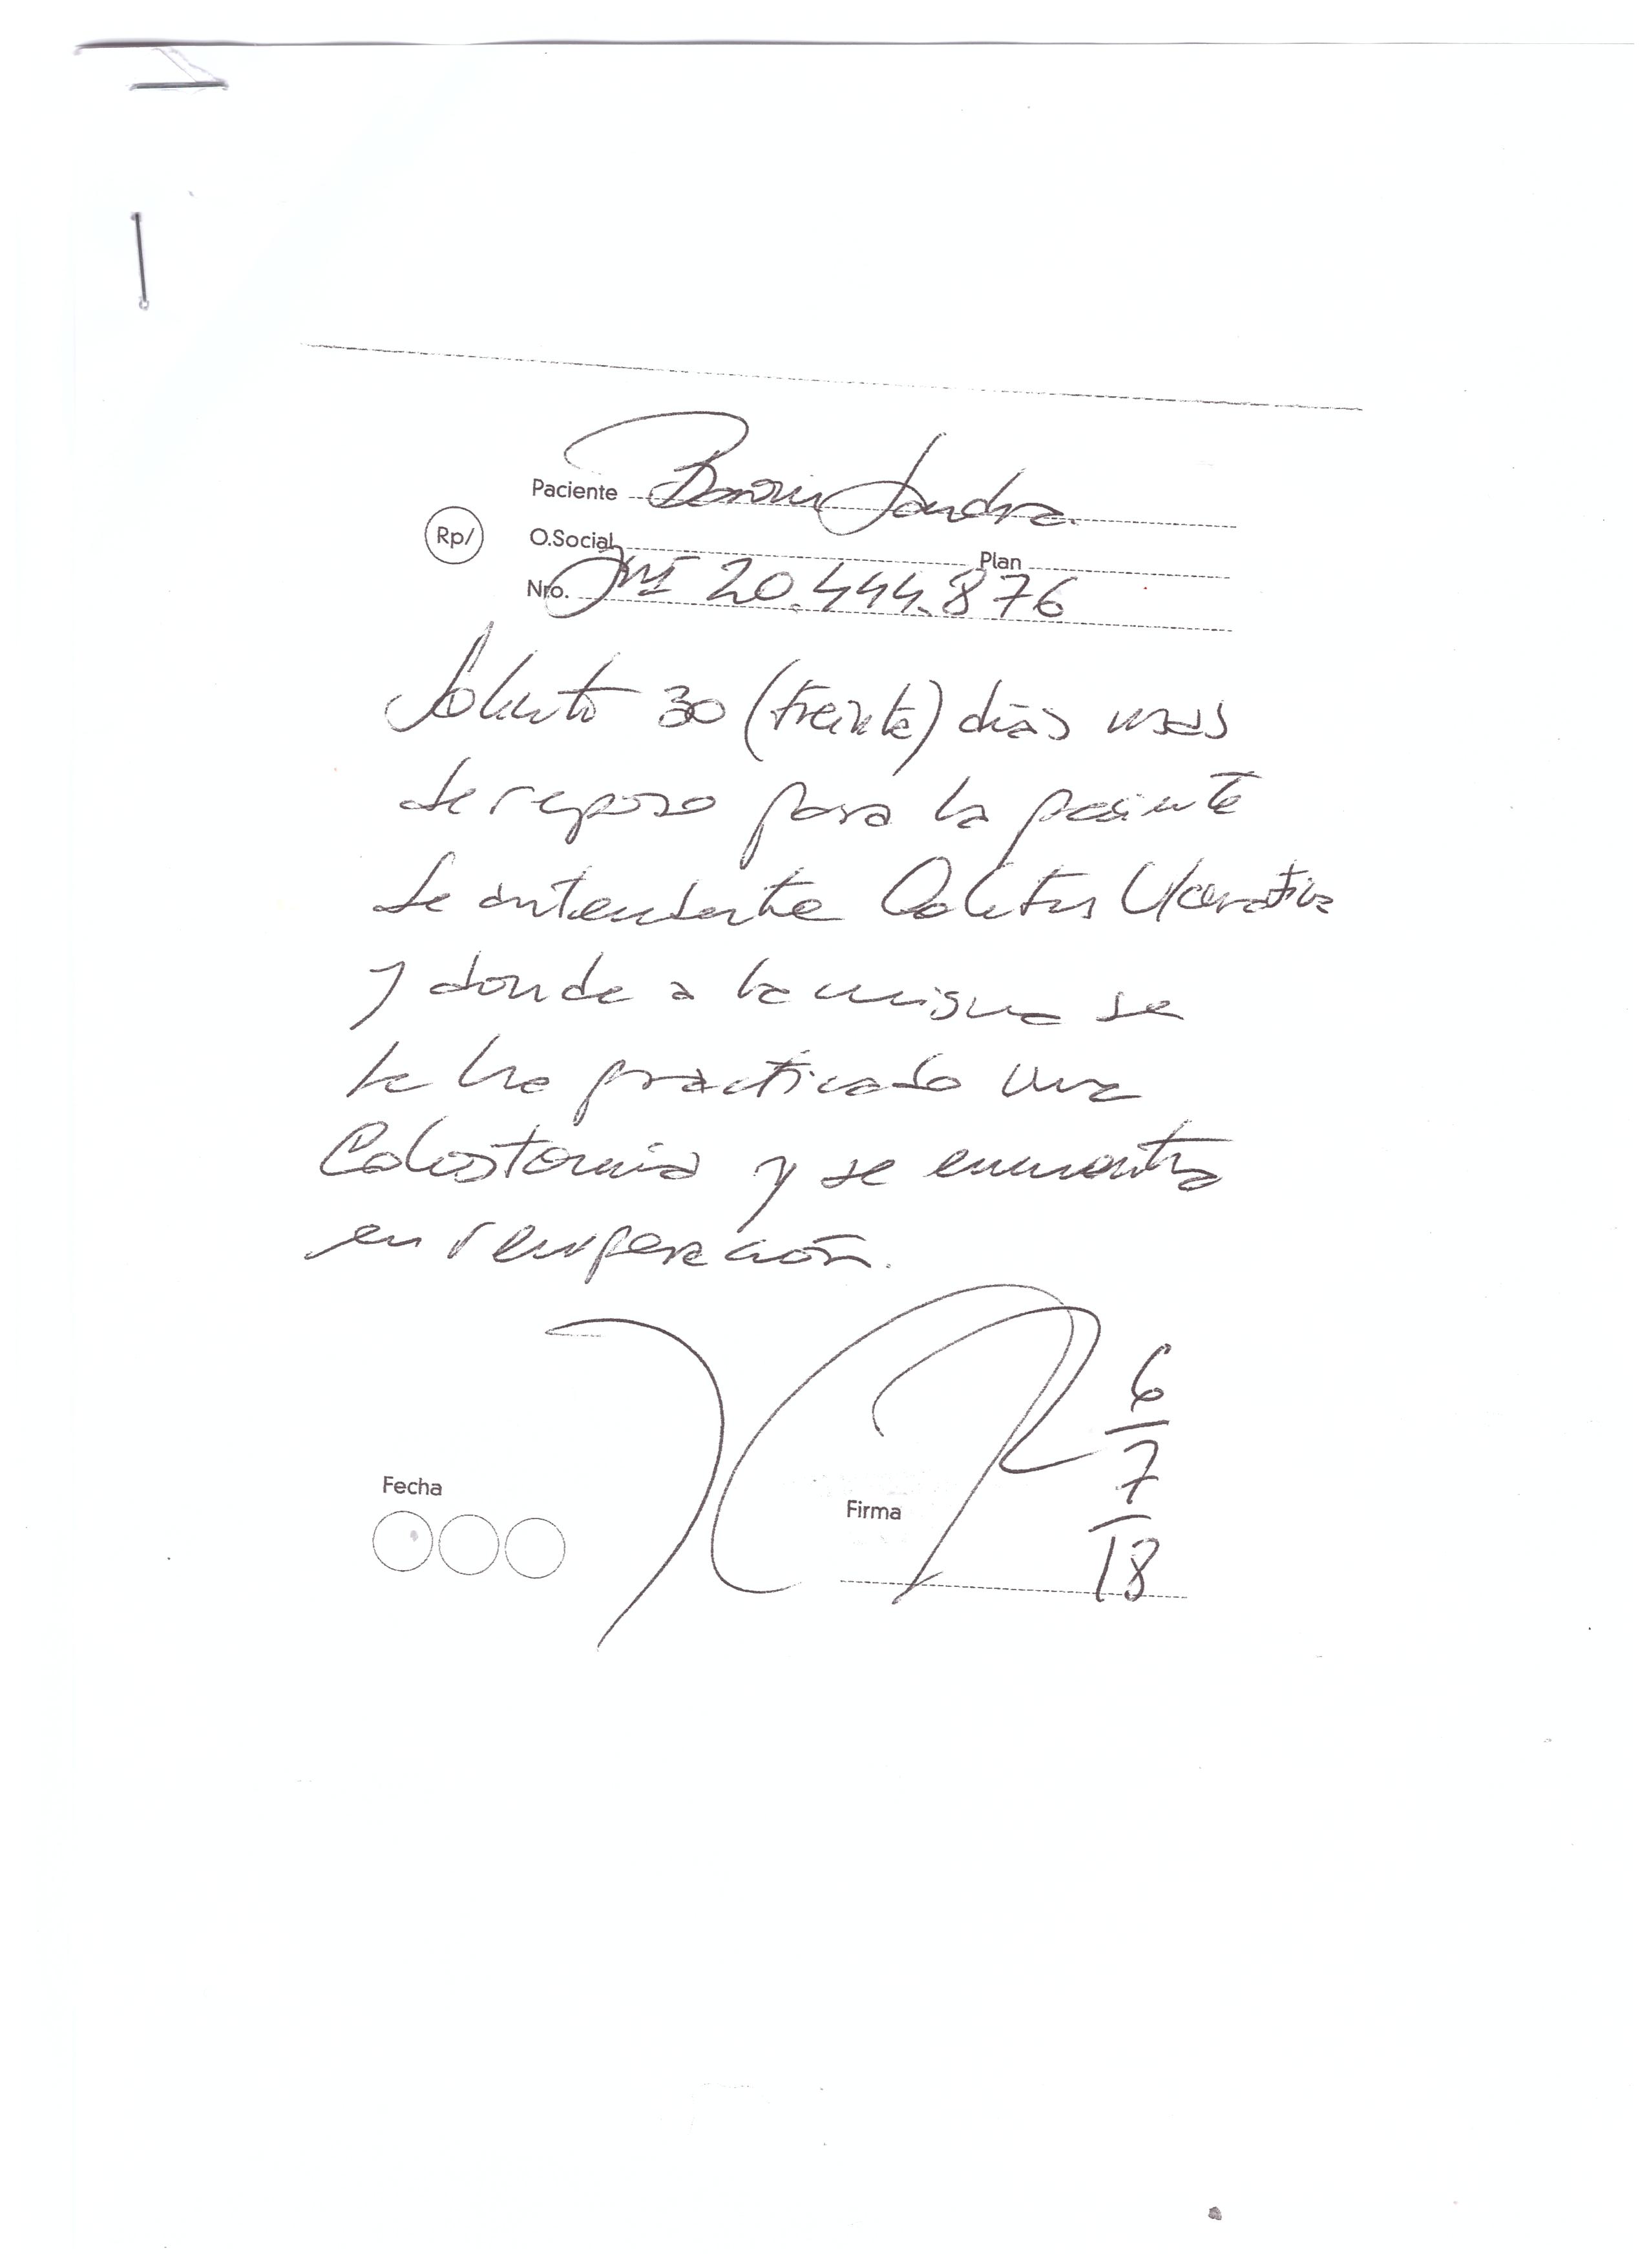 Paciente Sandra
Rp/
O.Social Plan
Nro. DNI 20.444.876
Solicito 30 (treinta) dias mas
de reposo para la paciente
de antecedente Colitis Ulcerativa
y donde a la misma se
le ha practicado una
Colostomia y se encuentra
en recuperación.
6
7
18
Fecha
Firma